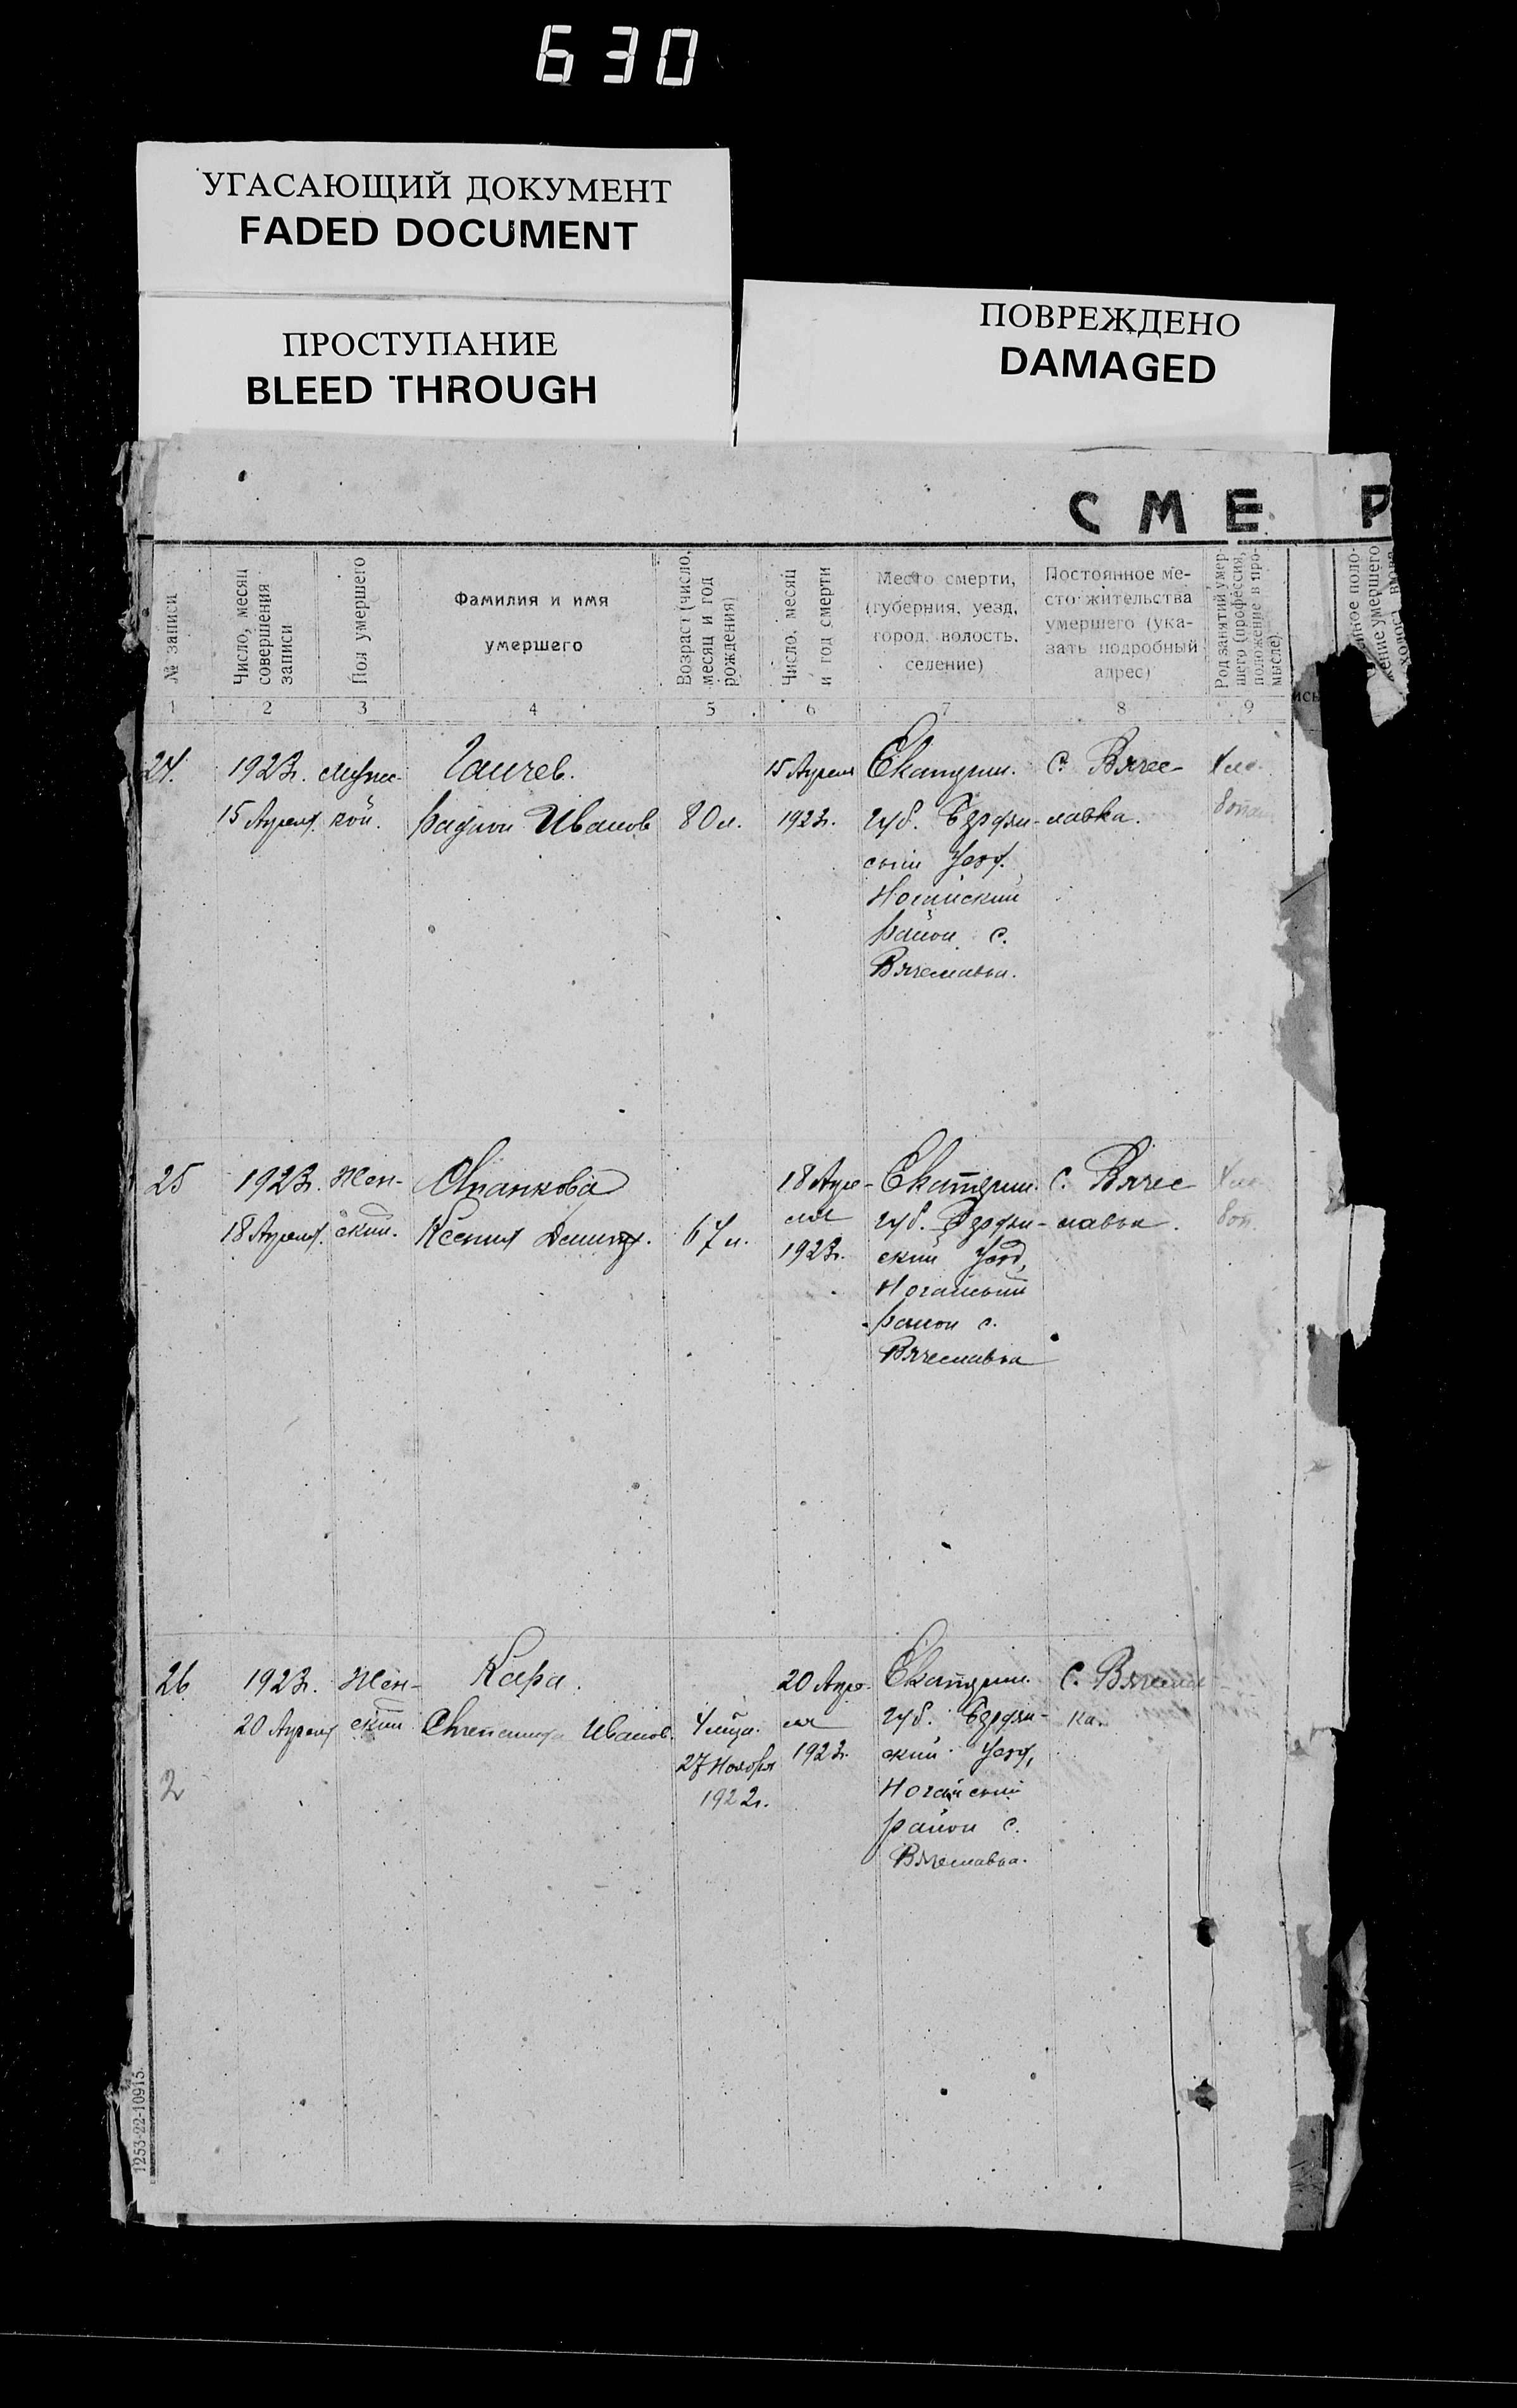 630
УГАСАЮЩИЙ ДОКУМЕНТ
FADED DOCUMENT
ПРОСТУПАНИЕ
BLEED THROUGH
ПОВРЕЖДЕНО
DAMAGED
СМЕ Р
№ записи
Число, месяц
совершения
записи
Пол умершего
Фамилия и имя
умершего
Возраст (число,
месяц и год
рождения)
Число, месяц
и год смерти
Место смерти,
(губерния, уезд,
город, волость,
селение)
Постоянное ме-
сто жительства
умершего (ука-
зать подробный
адрес)
Род занятий умер-
шего (профессия,
положение в про-
мысле)
ное поло-
жение умершего
1 2 3 4 5 6 7 8 9
24.
1923г.
15 Апреля.
мужс-
кой.
Ганчев.
Радион Иванов
80 л.
15 Апреля
1923г.
Екатерин.
губ. Бердян-
ский Уезд.
Ногайский
район с.
Вячеславка.
С. Вячес-
лавка.
Хле-
боп
25
1923г.
18 Апреля.
Жен-
ский.
Ксения
67 л.
18 Апре-
ля
1923г.
Екатерин.
губ. Бердян-
ский Уезд,
Ногайский
район с.
Вячеславка
с. Вячес
лавка.
Хле
боп.
26
1923г.
20 Апреля
Жен-
ский
Кара.
Степанида Иванов.
4 мца.
27 Ноября
1922г.
20 Апре-
ля
1923г.
Екатерин.
губ. Бердян-
ский Уезд,
Ногайский
район с.
Вячеславка.
С. Вячеслав-
ка
2
1253-22-10915